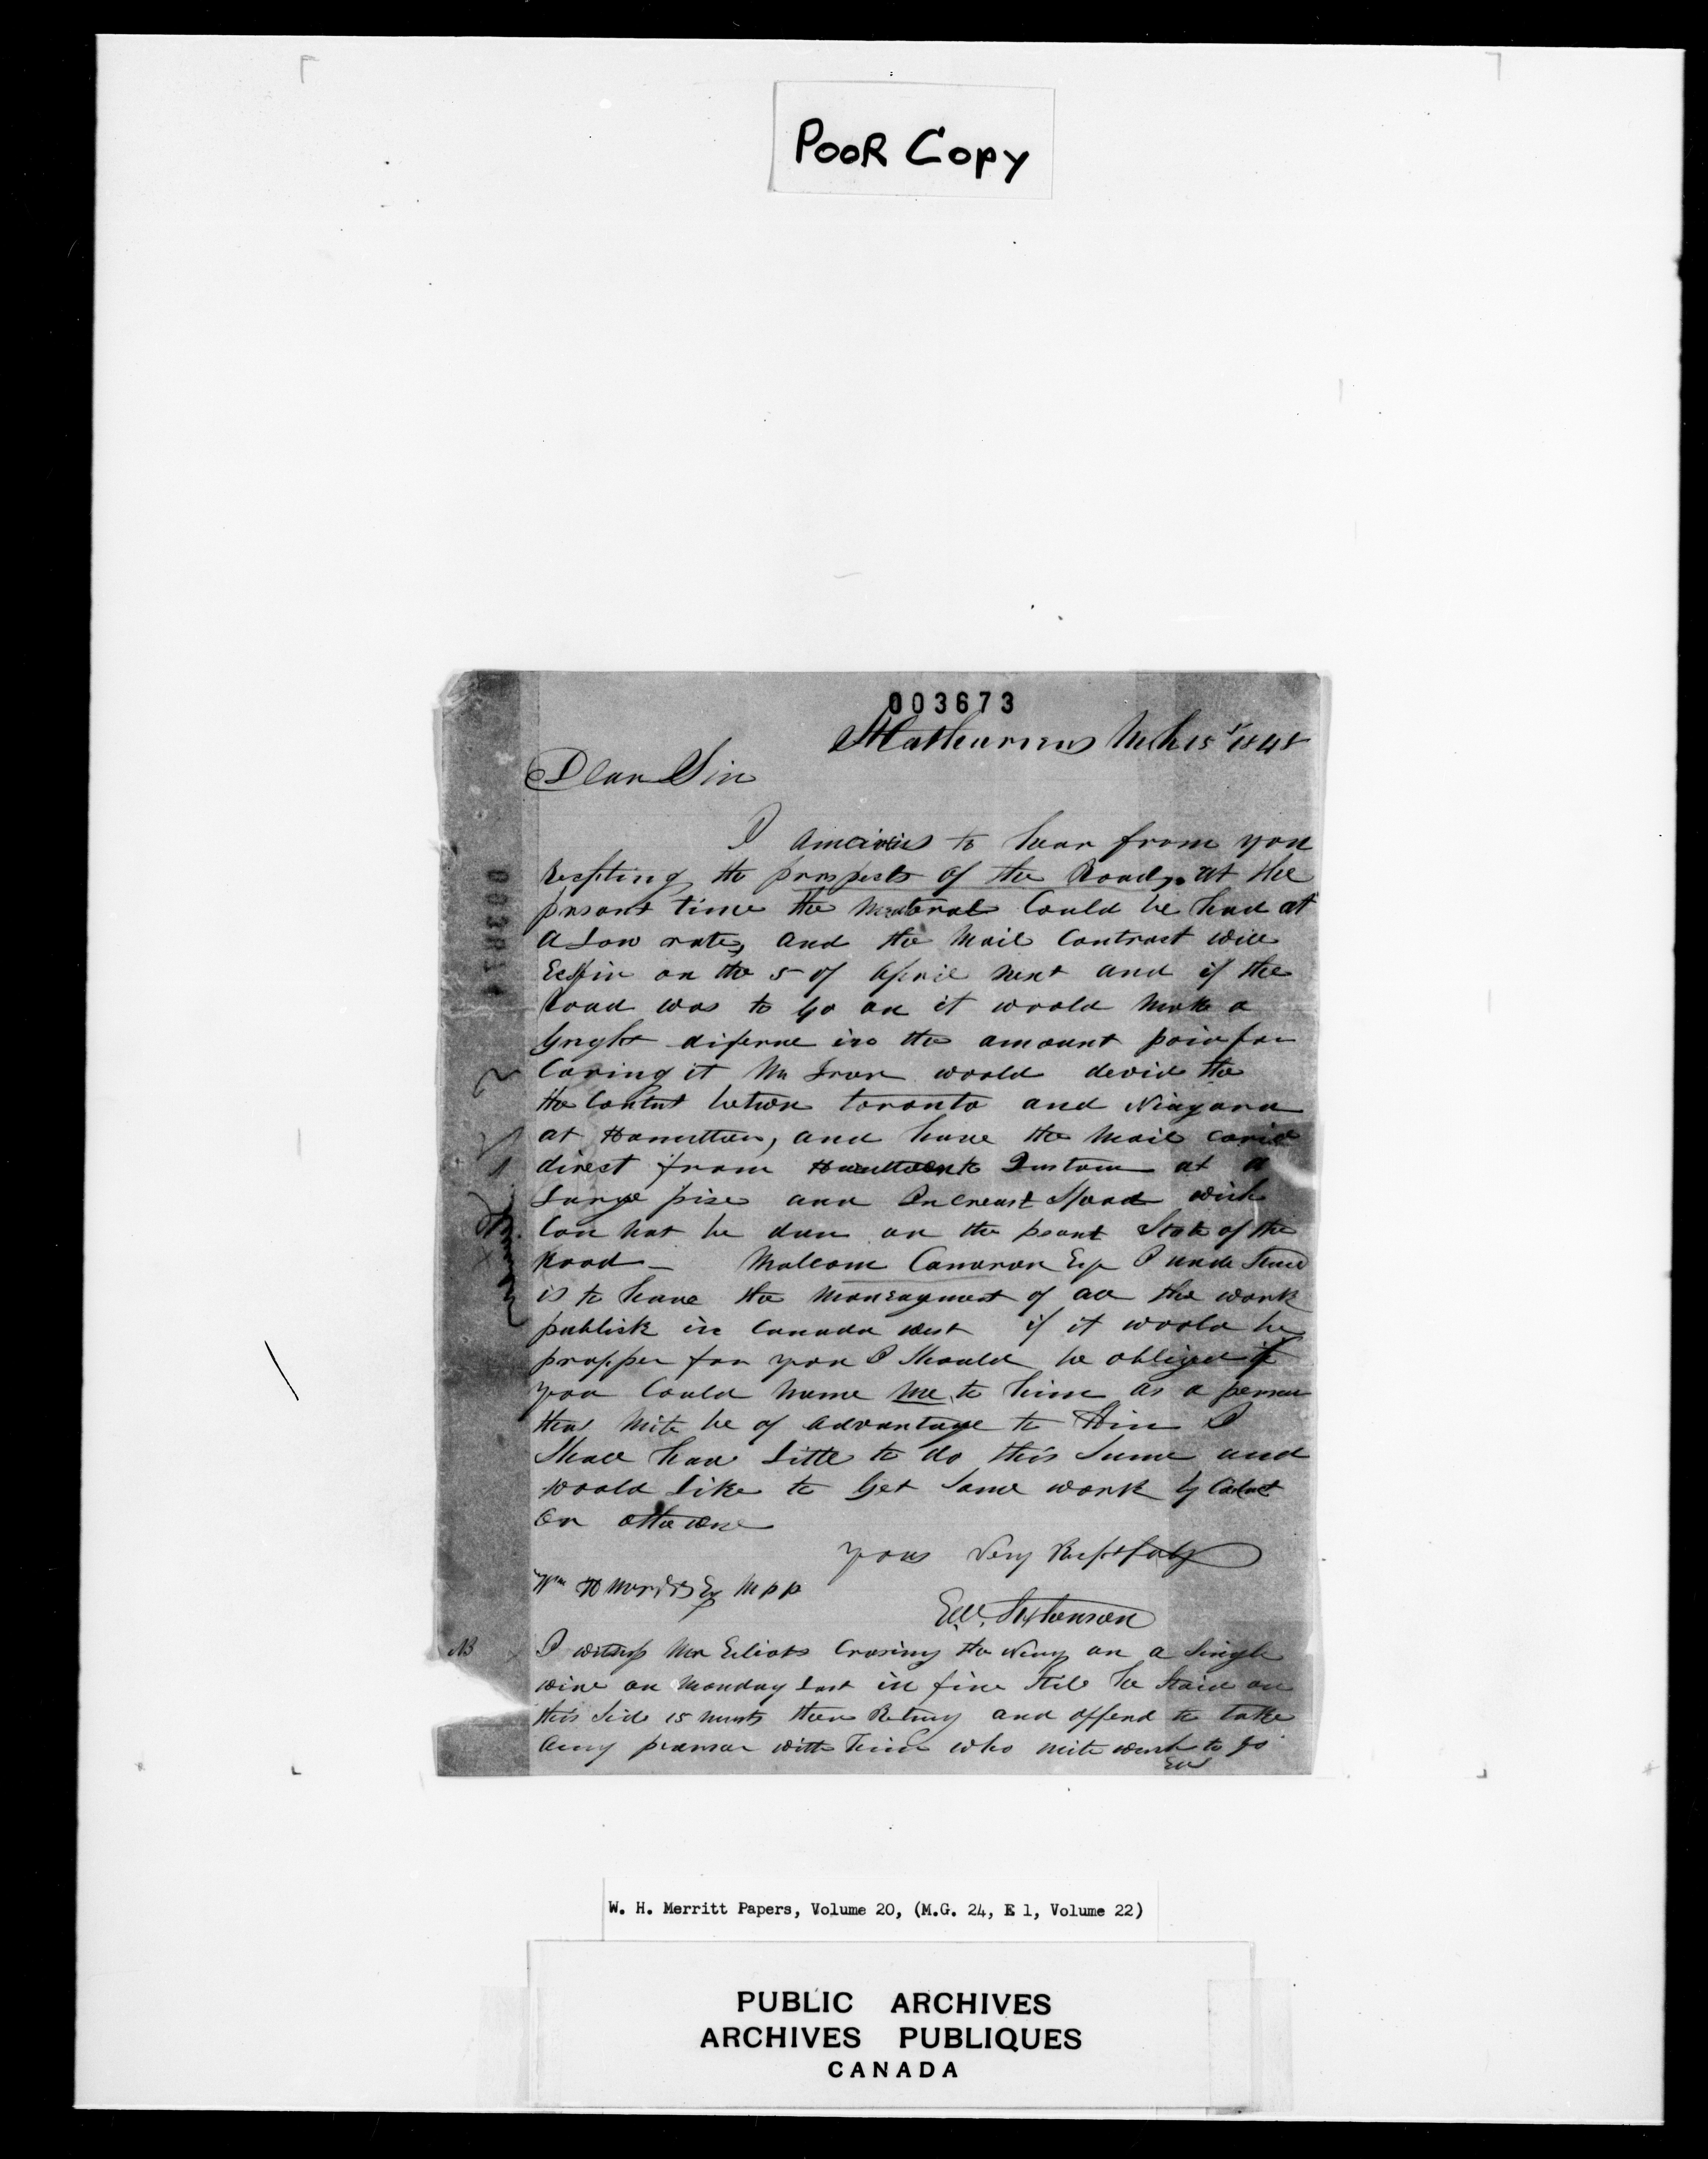 POOR COPY
003673
St Catharines Mch 15th 1848
Dear Sir
I ancious to hear from you
Respting the prospects of the Road, at the
present time the Material Could be had at
a Low rate, and the Mail Contract will
Expir on the 5 of April next and if the
Road was to go on it would make a
Gright diferne in the amount paid for
Caring it would devid the
the Contrct betwen toronto and Niagara
at Hamilton, and have the Mail caried
direct from Hamilton to at a
Large prise and Increast Spead wich
Can not be dun on the psent State of the
Road — Malcom Camaron Esqr I undestand
is to have the Manengment of all the work
publick in Canada West if it would be
propper for you I should be obliged if
you Could name me to him as a person
that mite be of advantage to Him I
Shall have Little to do this Sumer and
would Like to Get Some work by Contrct
Or otherwise
yous Very Respctfuly
Wm H Merritt Esq M p p
E.W. Stephenson
NB I witness Mr Eiliots Crosing the on a Single
wire on Monday Last in fine Stile he Staid on
this Side 15 munts then Retung and offerd to take
any pearson with him who mite wish to go
EWS
W. H. Merritt Papers, Volume 20, (M.G. 24, E 1, Volume 22)
PUBLIC ARCHIVES
ARCHIVES PUBLIQUES
CANADA